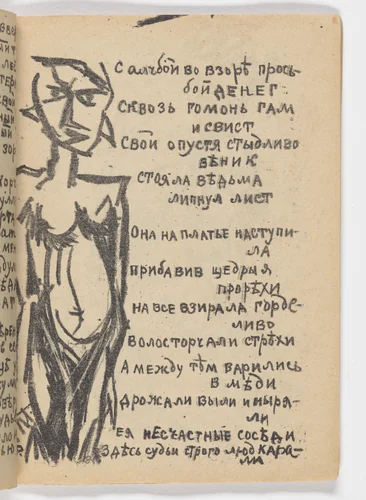 С алчбой во взорѣ прось-
бой денег
Сквозь гомонь гам
и свист
Свой опустя стыдливо
вѣник
стояла вѣдьма
липнул лист
Она на платье наступи-
ла
прибавив щедрыя
прорѣхи
на все взирала гордѣ-
ливо
Волос торчали стрѣхи
А между тѣм варились
в мѣди
Дрожали выли и ныря-
ли
ея несчастные сосѣди
Здѣсь судьи строго люд кара-
ли